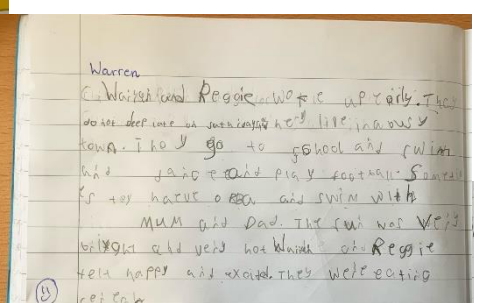 Warren
Warren and Reggie woke up early. They
do not sleep late on saturdays they live in a busy
town. They go to school and swim
and dance and play football. Someti
s they
and swim with
MUM and Dad. The sun was very
bright and very hot Warren and Reggie
felt happy and excited. They were eating